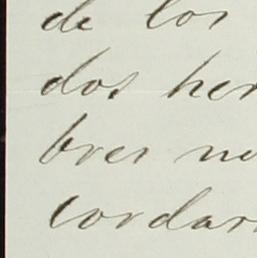 de los
dos her
bres no
cordar